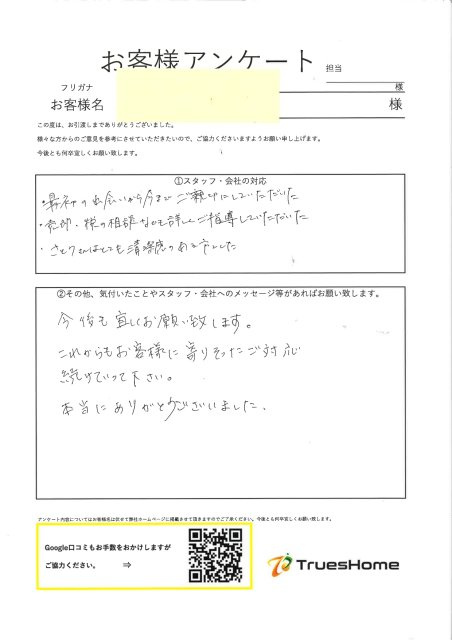 お客様アンケート
担当
様
フリガナ
お客様名
様
この度は、お引渡しまでありがとうございました。
様々な方からのご意見を参考にさせていただきたいので、ご協力くださいますようお願い申し上げます。
今後とも何卒宜しくお願い致します。
①スタッフ・会社の対応
・最初の出会いから今まで ご親切にしていただいた
・売却・税の相談なども詳しくご指導していただいた
・さとうさんはとても清潔感のある方でした
②その他、気付いたことやスタッフ・会社へのメッセージ等があればお願い致します。
今後も宜しくお願い致します。
これからもお客様に寄りそったご対応
続けていって下さい。
本当にありがとうございました。
アンケート内容についてはお客様名は伏せて弊社ホームページに掲載させて頂きますのでご了承ください。今後とも何卒宜しくお願い致します。
Google口コミもお手数をおかけしますが
ご協力ください。 ⇒
TruesHome